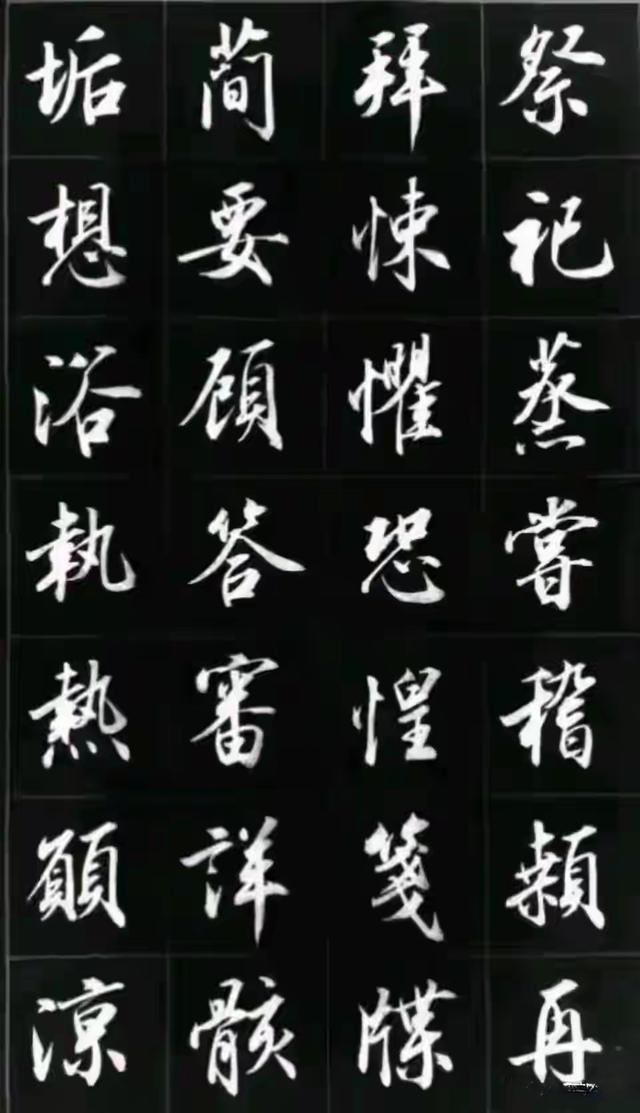 祭祀蒸嘗稽顙再
拜悚懼恐惶箋牒
蕳要顧答審詳骸
垢想浴執熱願涼